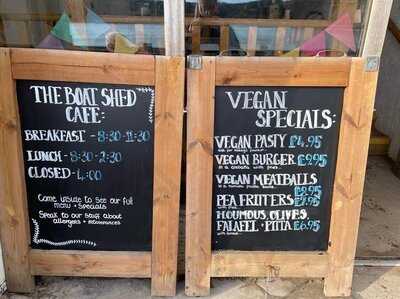 THE BOAT SHED
CAFE:
BREAKFAST - 8:30-11:30
LUNCH - 8:30-2:30
CLOSED - 4:00
Come inside to see our full
menu + specials
Speak to our staff about
allergies + intolerances
VEGAN
SPECIALS:
VEGAN PASTY £4.95
VEGAN BURGER £9.95
in a ciabatta with fries
VEGAN MEATBALLS
in a tomato £8.95
PEA FRITTERS
HOUMOUS, OLIVES,
FALAFEL + PITTA £6.95